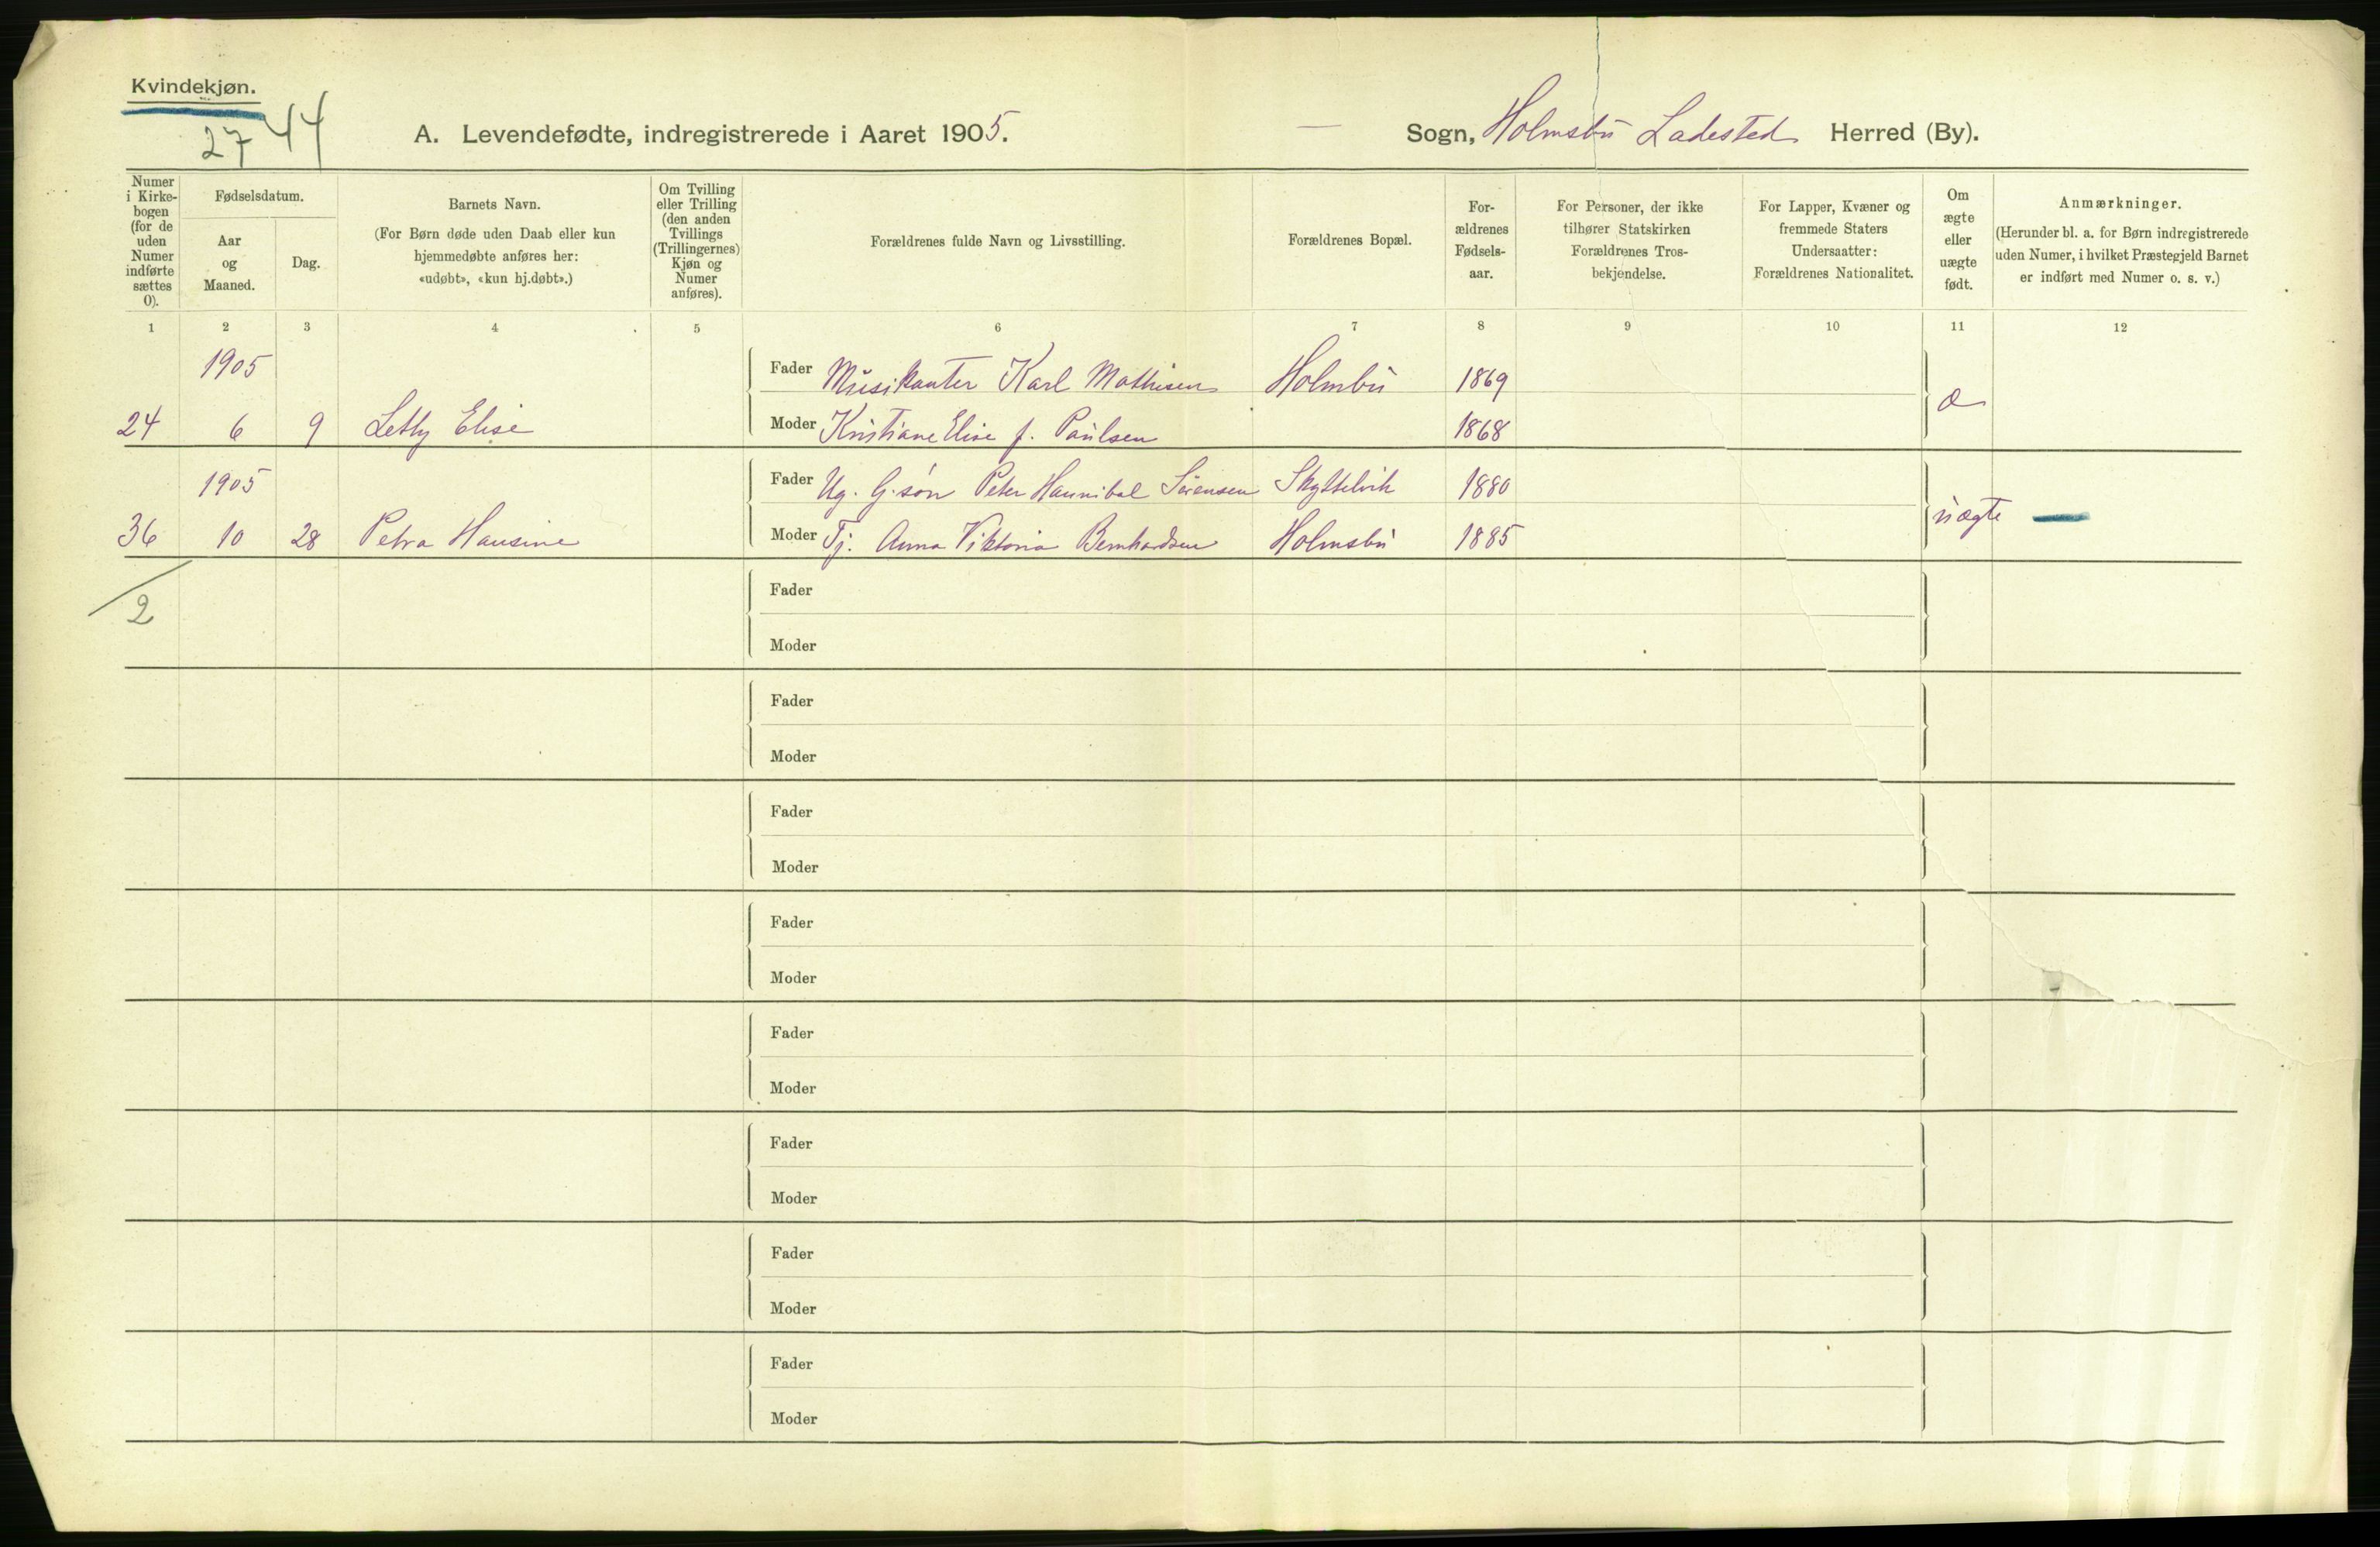 Kvindekjøn.
27 44
A. Levendefødte, indregistrerede i Aaret 1905.
— Sogn, Holmsbu Ladested Herred (By).
Numer i Kirkebogen (for de uden Numer indførte sættes 0).
Fødselsdatum.
Aar og Maaned.
Dag.
Barnets Navn.
(For Børn døde uden Daab eller kun
hjemmedøbte anføres her:
«udøbt», «kun hj.døbt».)
Om Tvilling
eller Trilling
(den anden
Tvillings
(Trillingernes)
Kjøn og
Numer
anføres).
Forældrenes fulde Navn og Livsstilling.
Forældrenes Bopæl.
For-
ældrenes
Fødsels-
aar.
For Personer, der ikke
tilhører Statskirken
Forældrenes Tros-
bekjendelse.
For Lapper, Kvæner og
fremmede Staters
Undersaatter:
Forældrenes Nationalitet.
Om
ægte
eller
uægte
født.
Anmærkninger.
(Herunder bl. a. for Børn indregistrerede
uden Numer, i hvilket Præstegjeld Barnet
er indført med Numer o. s. v.)
1 2 3 4 5 6 7 8 9 10 11 12
1905 Fader Musikanter Karl Mathisen Holmbu 1869
æ
24 6 9 Letty Elise Moder Kristiane Elise f. Paulsen 1868
1905 Fader Ug. G.søn Peter Hannibal Sørensen Skyttelvik 1880
uægte —
36 10 28 Petra Hansine Moder Tj. Anna Viktoria Bernhardsen Holmsbu 1885
2
Fader
Moder
Fader
Moder
Fader
Moder
Fader
Moder
Fader
Moder
Fader
Moder
Fader
Moder
Fader
Moder